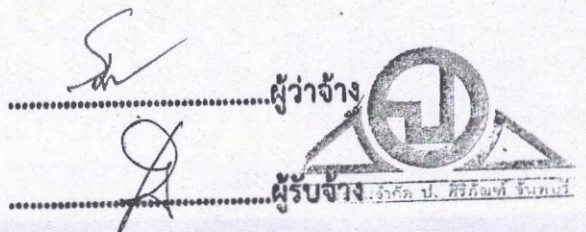 ....................ผู้ว่าจ้าง
....................ผู้รับจ้าง
ป
จำกัด ป. ศิริภัณฑ์ จันทบุรี